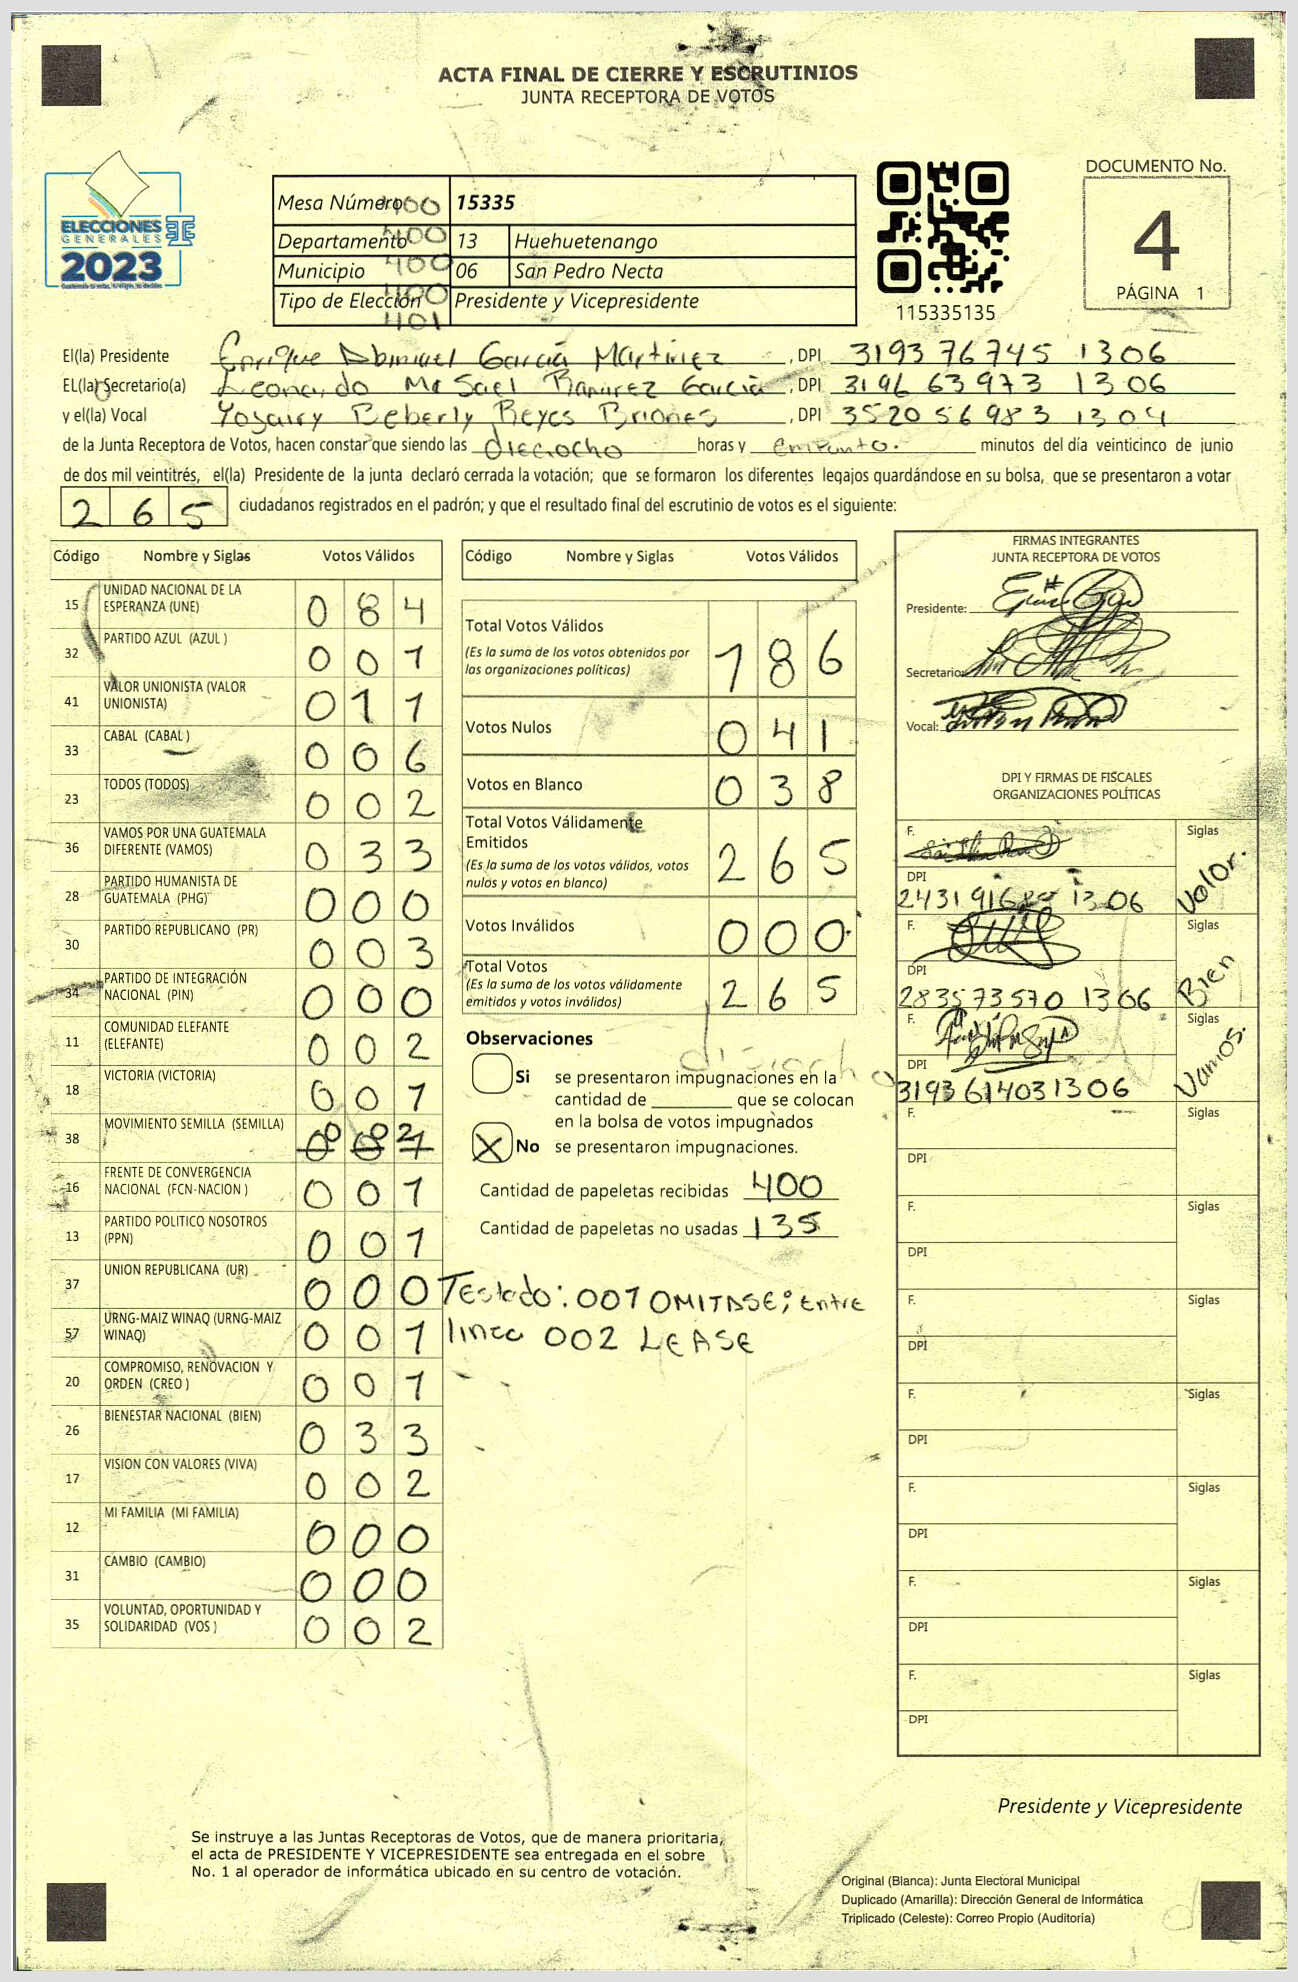 ACTA FINAL DE CIERRE Y ESCRUTINIOS
JUNTA RECEPTORA DE VOTOS
ELECCIONES
GENERALES
2023
Mesa Número 15335
400
Departamento 13 Huehuetenango
400
Municipio 06 San Pedro Necta
400
Tipo de Elección Presidente y Vicepresidente
400
401
115335135
DOCUMENTO No.
4
PÁGINA 1
El(la) Presidente Enrique Abimael García Martinez, DPI 3193 76745 1306
EL(la) Secretario(a) Leonardo Misael Ramirez García, DPI 3196 63973 1306
y el(la) Vocal Yosairy Beberly Reyes Briones, DPI 3520 56983 1304
de la Junta Receptora de Votos, hacen constar que siendo las dieciocho horas y en punto. minutos del día veinticinco de junio
de dos mil veintitrés, el(la) Presidente de la junta declaró cerrada la votación; que se formaron los diferentes legajos guardándose en su bolsa, que se presentaron a votar
265 ciudadanos registrados en el padrón; y que el resultado final del escrutinio de votos es el siguiente:
Código Nombre y Siglas Votos Válidos
15 UNIDAD NACIONAL DE LA ESPERANZA (UNE) 084
32 PARTIDO AZUL (AZUL ) 001
41 VALOR UNIONISTA (VALOR UNIONISTA) 011
33 CABAL (CABAL ) 006
23 TODOS (TODOS) 002
36 VAMOS POR UNA GUATEMALA DIFERENTE (VAMOS) 033
28 PARTIDO HUMANISTA DE GUATEMALA (PHG) 000
30 PARTIDO REPUBLICANO (PR) 003
34 PARTIDO DE INTEGRACIÓN NACIONAL (PIN) 000
11 COMUNIDAD ELEFANTE (ELEFANTE) 002
18 VICTORIA (VICTORIA) 001
38 MOVIMIENTO SEMILLA (SEMILLA) 001 002
16 FRENTE DE CONVERGENCIA NACIONAL (FCN-NACION ) 001
13 PARTIDO POLITICO NOSOTROS (PPN) 001
37 UNION REPUBLICANA (UR) 000
57 URNG-MAIZ WINAQ (URNG-MAIZ WINAQ) 001
20 COMPROMISO, RENOVACION Y ORDEN (CREO ) 001
26 BIENESTAR NACIONAL (BIEN) 033
17 VISION CON VALORES (VIVA) 002
12 MI FAMILIA (MI FAMILIA) 000
31 CAMBIO (CAMBIO) 000
35 VOLUNTAD, OPORTUNIDAD Y SOLIDARIDAD (VOS ) 002
Código Nombre y Siglas Votos Válidos
Total Votos Válidos 186
(Es la suma de los votos obtenidos por
las organizaciones políticas)
Votos Nulos 041
Votos en Blanco 038
Total Votos Válidamente
Emitidos 265
(Es la suma de los votos válidos, votos
nulos y votos en blanco)
Votos Inválidos 000
Total Votos 265
(Es la suma de los votos válidamente
emitidos y votos inválidos)
Observaciones
Si se presentaron impugnaciones en la
cantidad de ________ que se colocan
en la bolsa de votos impugnados
X No se presentaron impugnaciones.
Cantidad de papeletas recibidas 400
Cantidad de papeletas no usadas 135
Testado: 001 OMITASE; Entre
linea 002 LEASE
FIRMAS INTEGRANTES
JUNTA RECEPTORA DE VOTOS
Presidente:
Secretario:
Vocal:
DPI Y FIRMAS DE FISCALES
ORGANIZACIONES POLÍTICAS
F. Siglas
DPI Valor.
1306
F. Siglas
DPI Bien
283573570 1306
F. Siglas
DPI Vamos.
3193614031306
F. Siglas
DPI
F. Siglas
DPI
F. Siglas
DPI
F. Siglas
DPI
F. Siglas
DPI
F. Siglas
DPI
F. Siglas
DPI
Presidente y Vicepresidente
Se instruye a las Juntas Receptoras de Votos, que de manera prioritaria,
el acta de PRESIDENTE Y VICEPRESIDENTE sea entregada en el sobre
No. 1 al operador de informática ubicado en su centro de votación.
Original (Blanca): Junta Electoral Municipal
Duplicado (Amarilla): Dirección General de Informática
Triplicado (Celeste): Correo Propio (Auditoría)